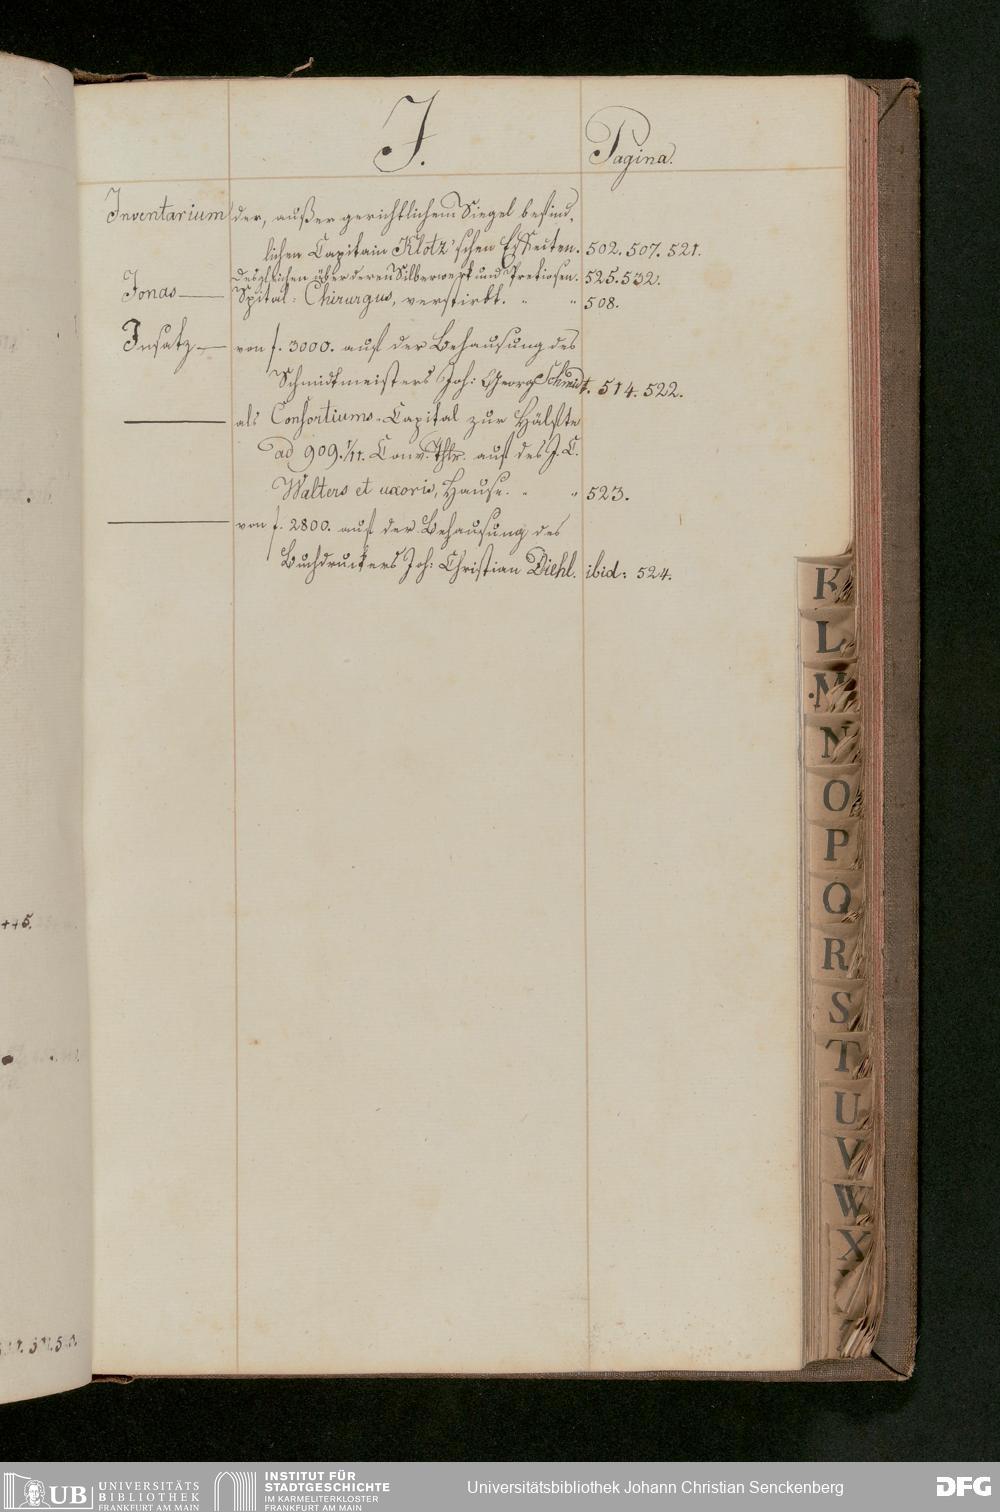 J.
Pagina.
Inventarium der, außer gerichtlichem Siegel befind,
lichen Capitain Klotz'schen Effecten. 502. 507. 521.
desgleichen über deren Silberwerk und Pretiosen. 525. 532.
Jonas — Spital-Chirurgus, verstirbt. " " 508.
Insatz — von f. 3000. auf der Behausung des
Schmidtmeisters Joh: Georg Schmidt. 514. 522.
— als Consortiums-Capital zur Hälfte
ad 909. 1/11. Conv. Thlr. auf des J. C.
Walters et uxoris, Hause. " " 523.
— von f. 2800. auf der Behausung des
Buchdruckers Joh: Christian Diehl. ibid: 524.
K
L
M
N
O
P
Q
R
S
T
U
V
W
X
UB UNIVERSITÄTS
BIBLIOTHEK
FRANKFURT AM MAIN
INSTITUT FÜR
STADTGESCHICHTE
IM KARMELITERKLOSTER
FRANKFURT AM MAIN
Universitätsbibliothek Johann Christian Senckenberg
DFG